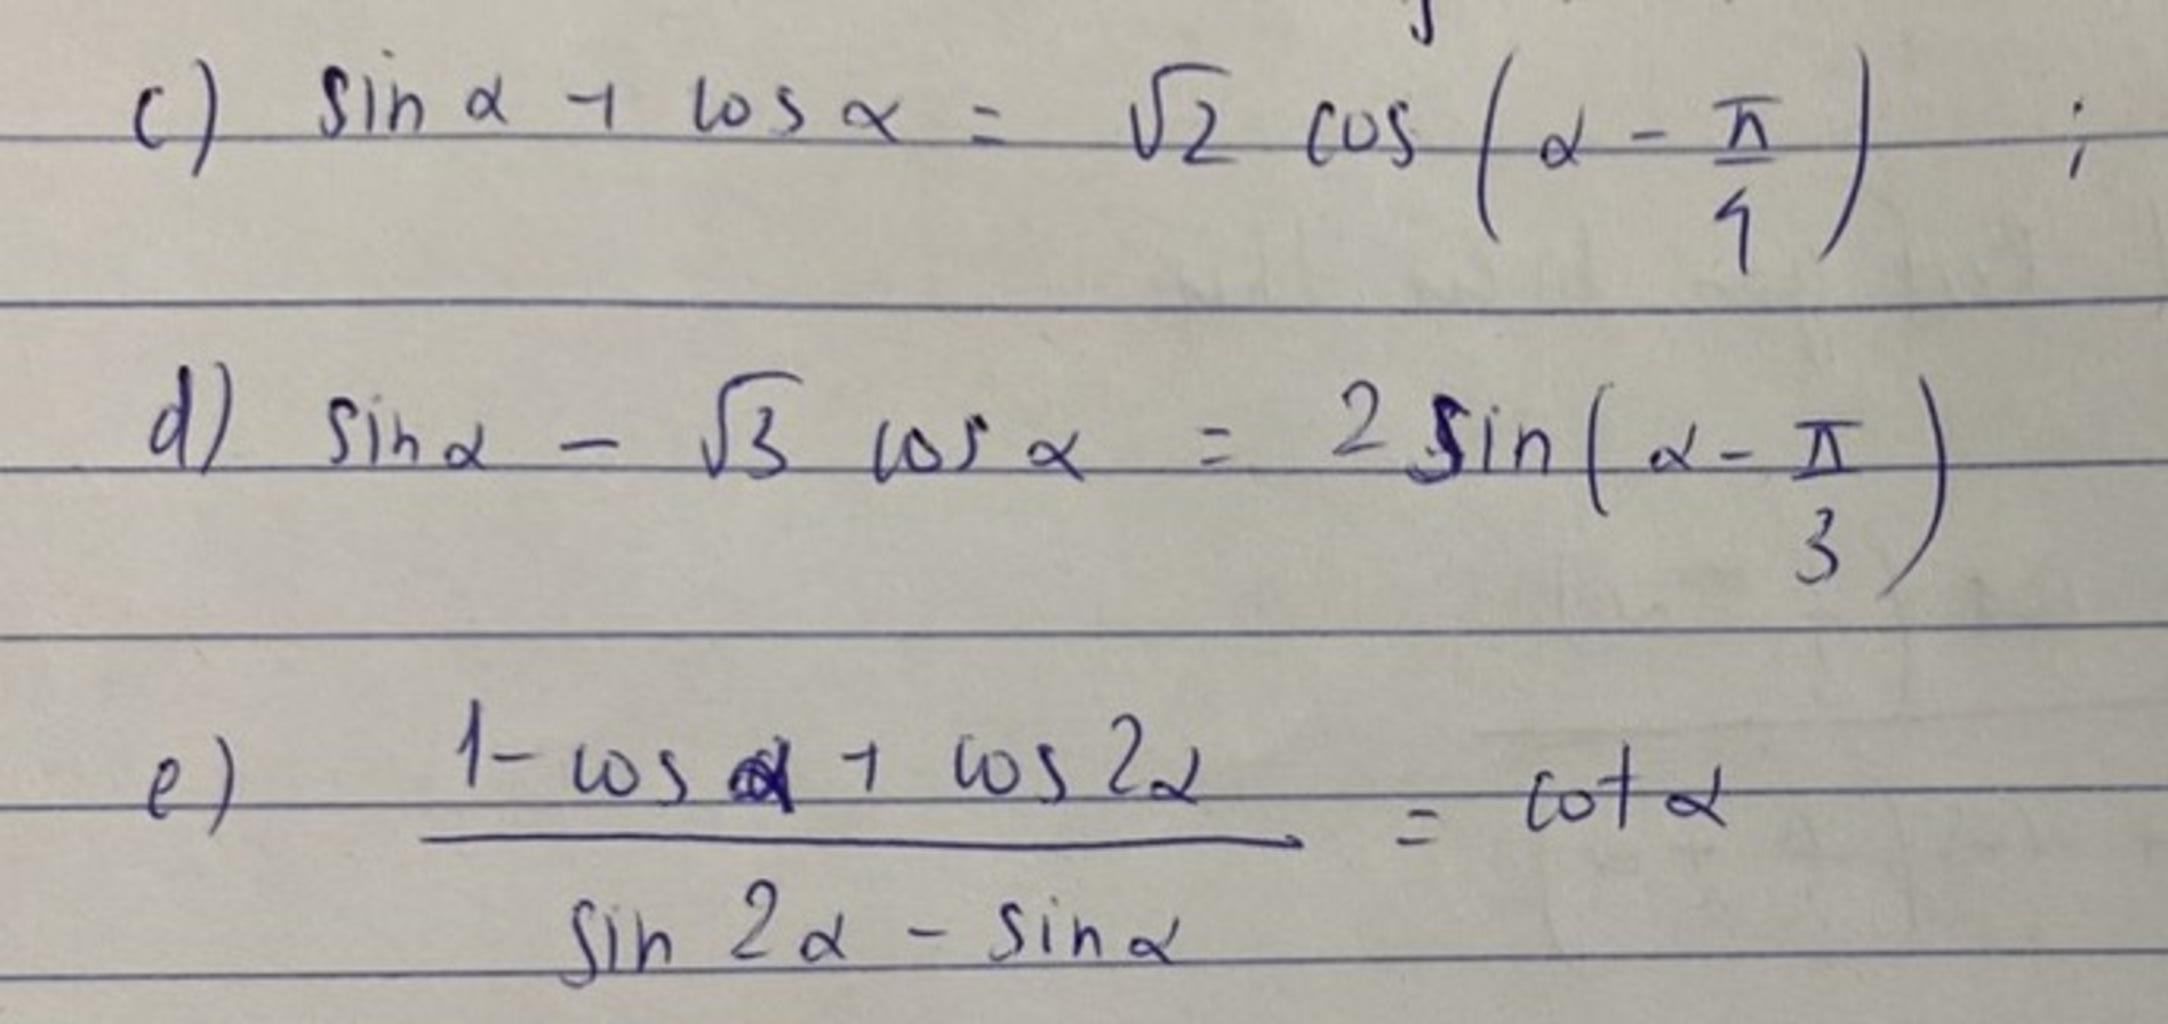 c) sin α + cos α = √2 cos (α - π/4) ;
d) sin α - √3 cos α = 2 sin (α - π/3)
e) (1 - cos α + cos 2α) / (sin 2α - sin α) = cot α